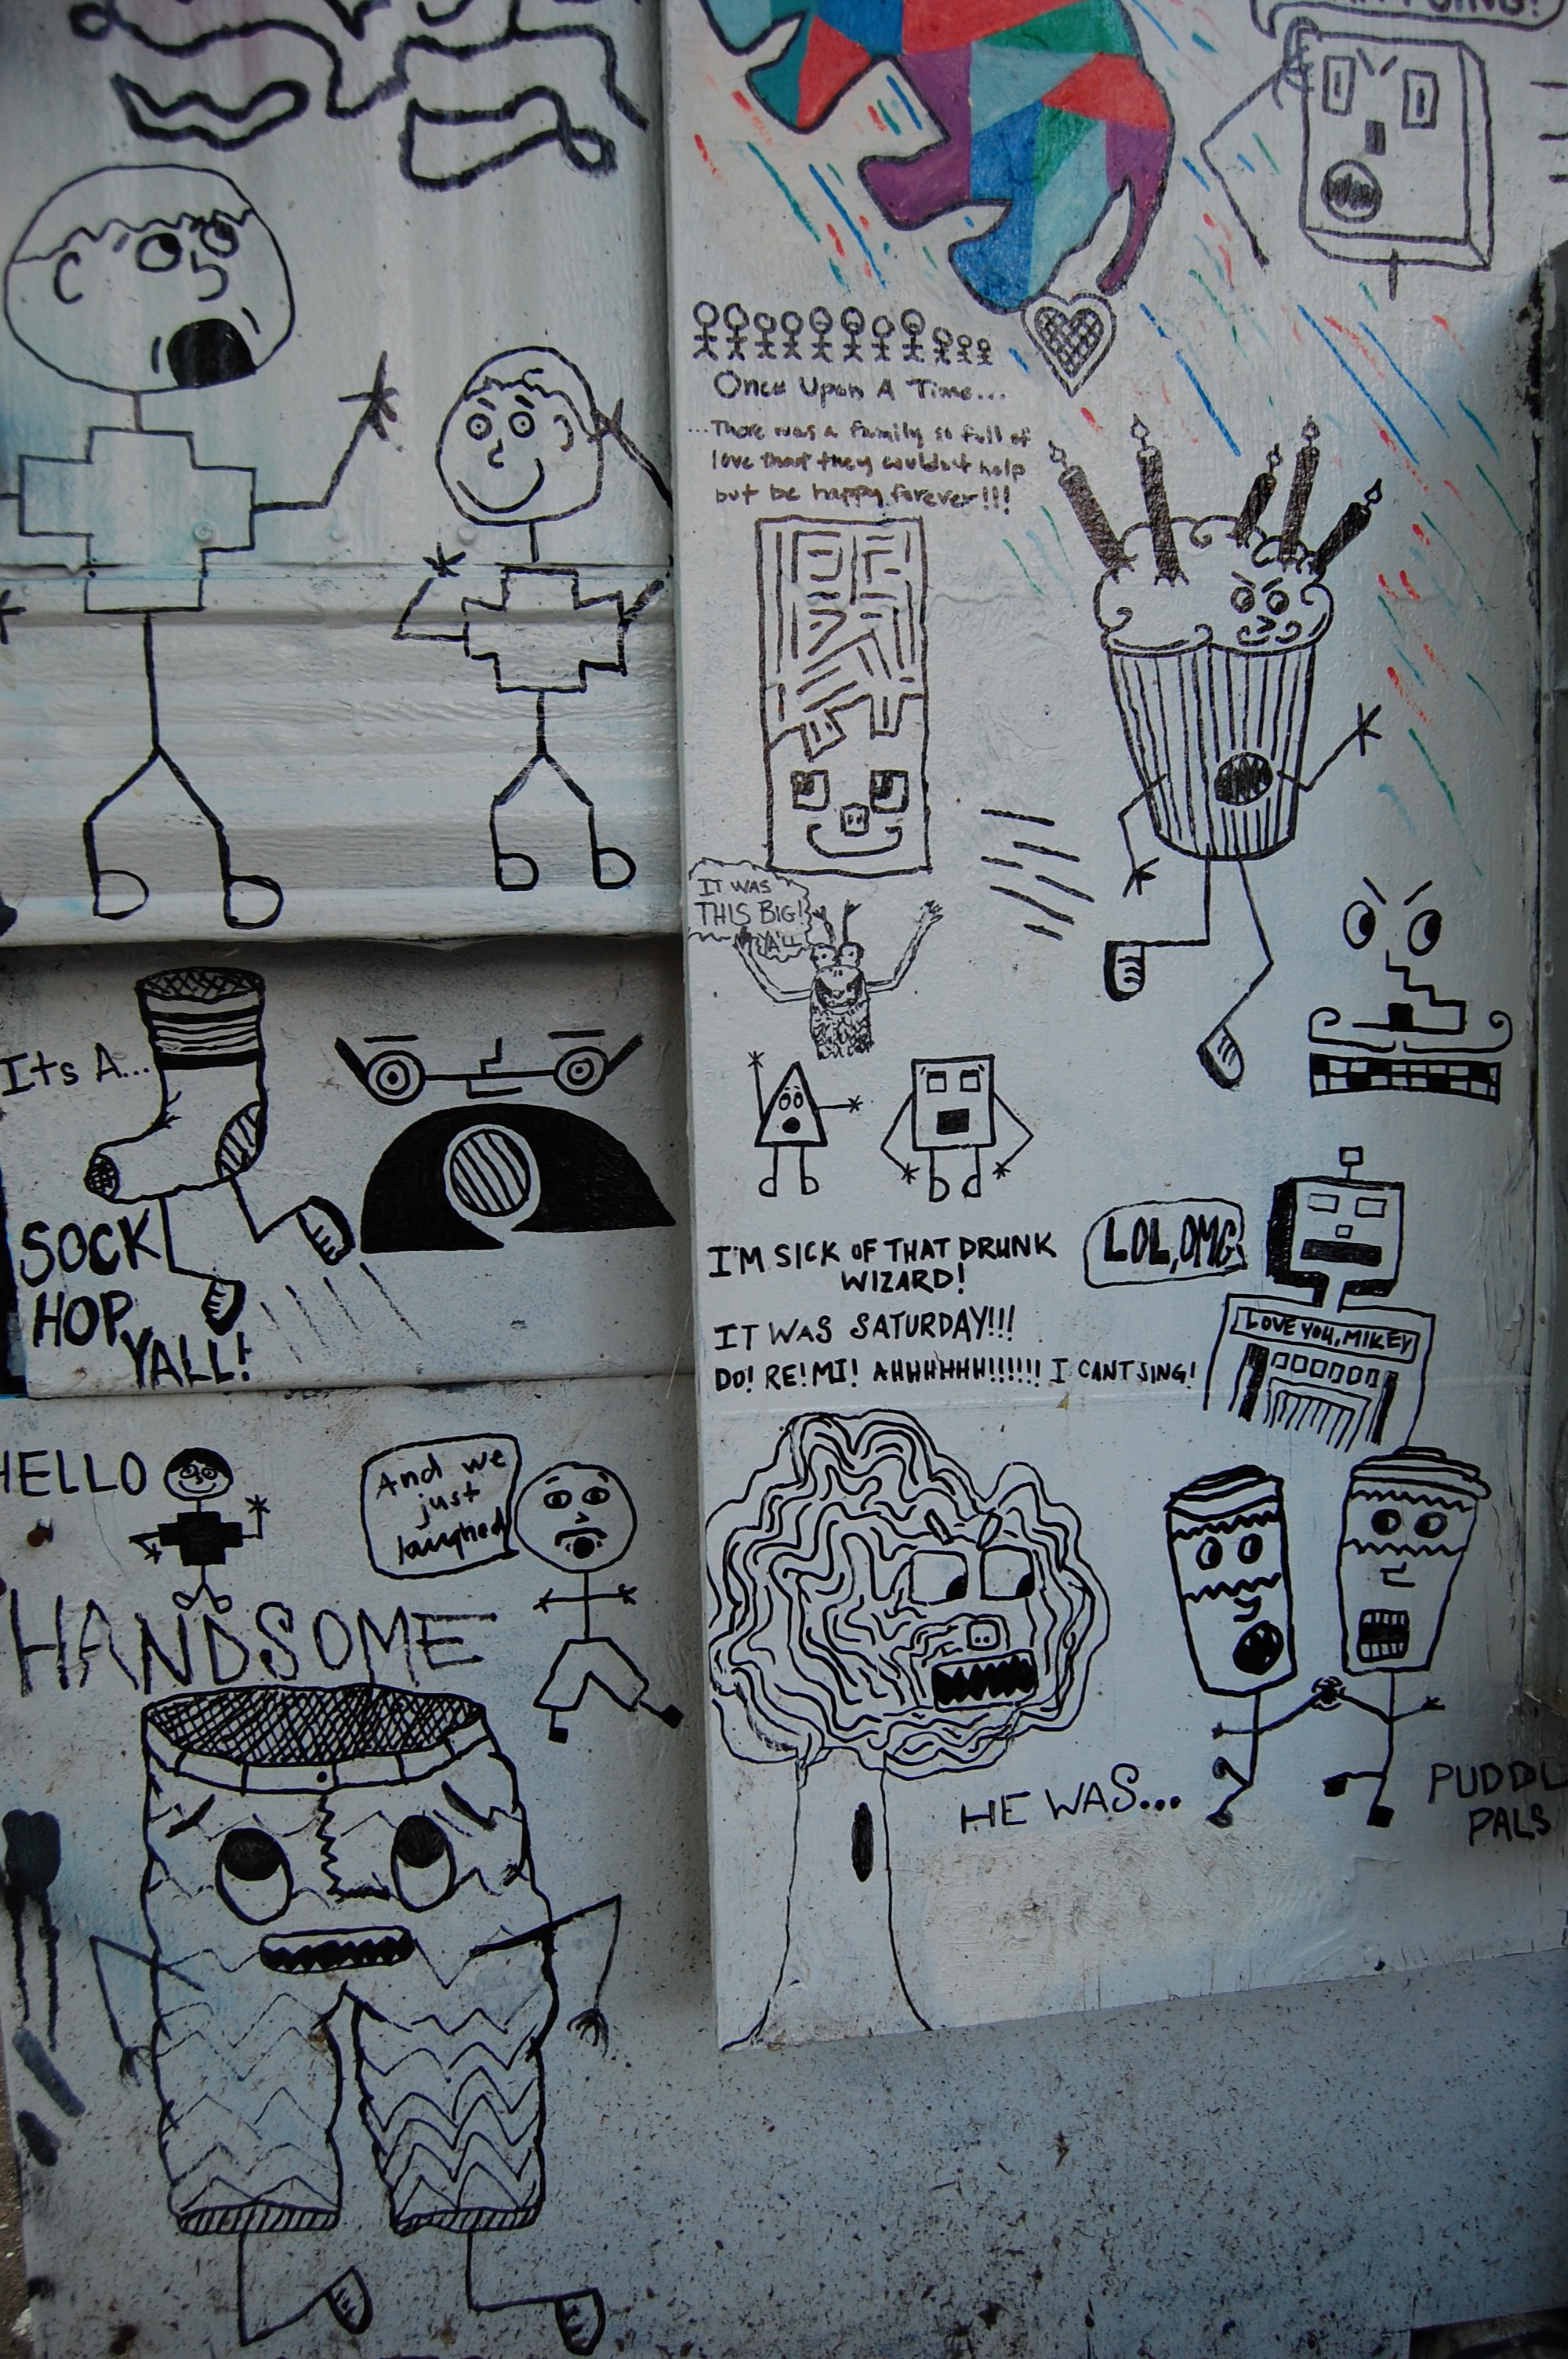 Once Upon A Time...
...There was a family so full of
love that they couldn't help
but be happy forever!!!
IT WAS
THIS BIG!
YA'LL
Its A...
SOCK
HOP
YALL!
I'M SICK OF THAT DRUNK
WIZARD!
LOL, OMG
IT WAS SATURDAY!!!
LOVE YOU, MIKEY
DO! RE! MI! AHHHHHH!!!!!! I CANT SING!
HELLO
HANDSOME
And we
just
laughed
HE WAS...
PUDDL
PALS